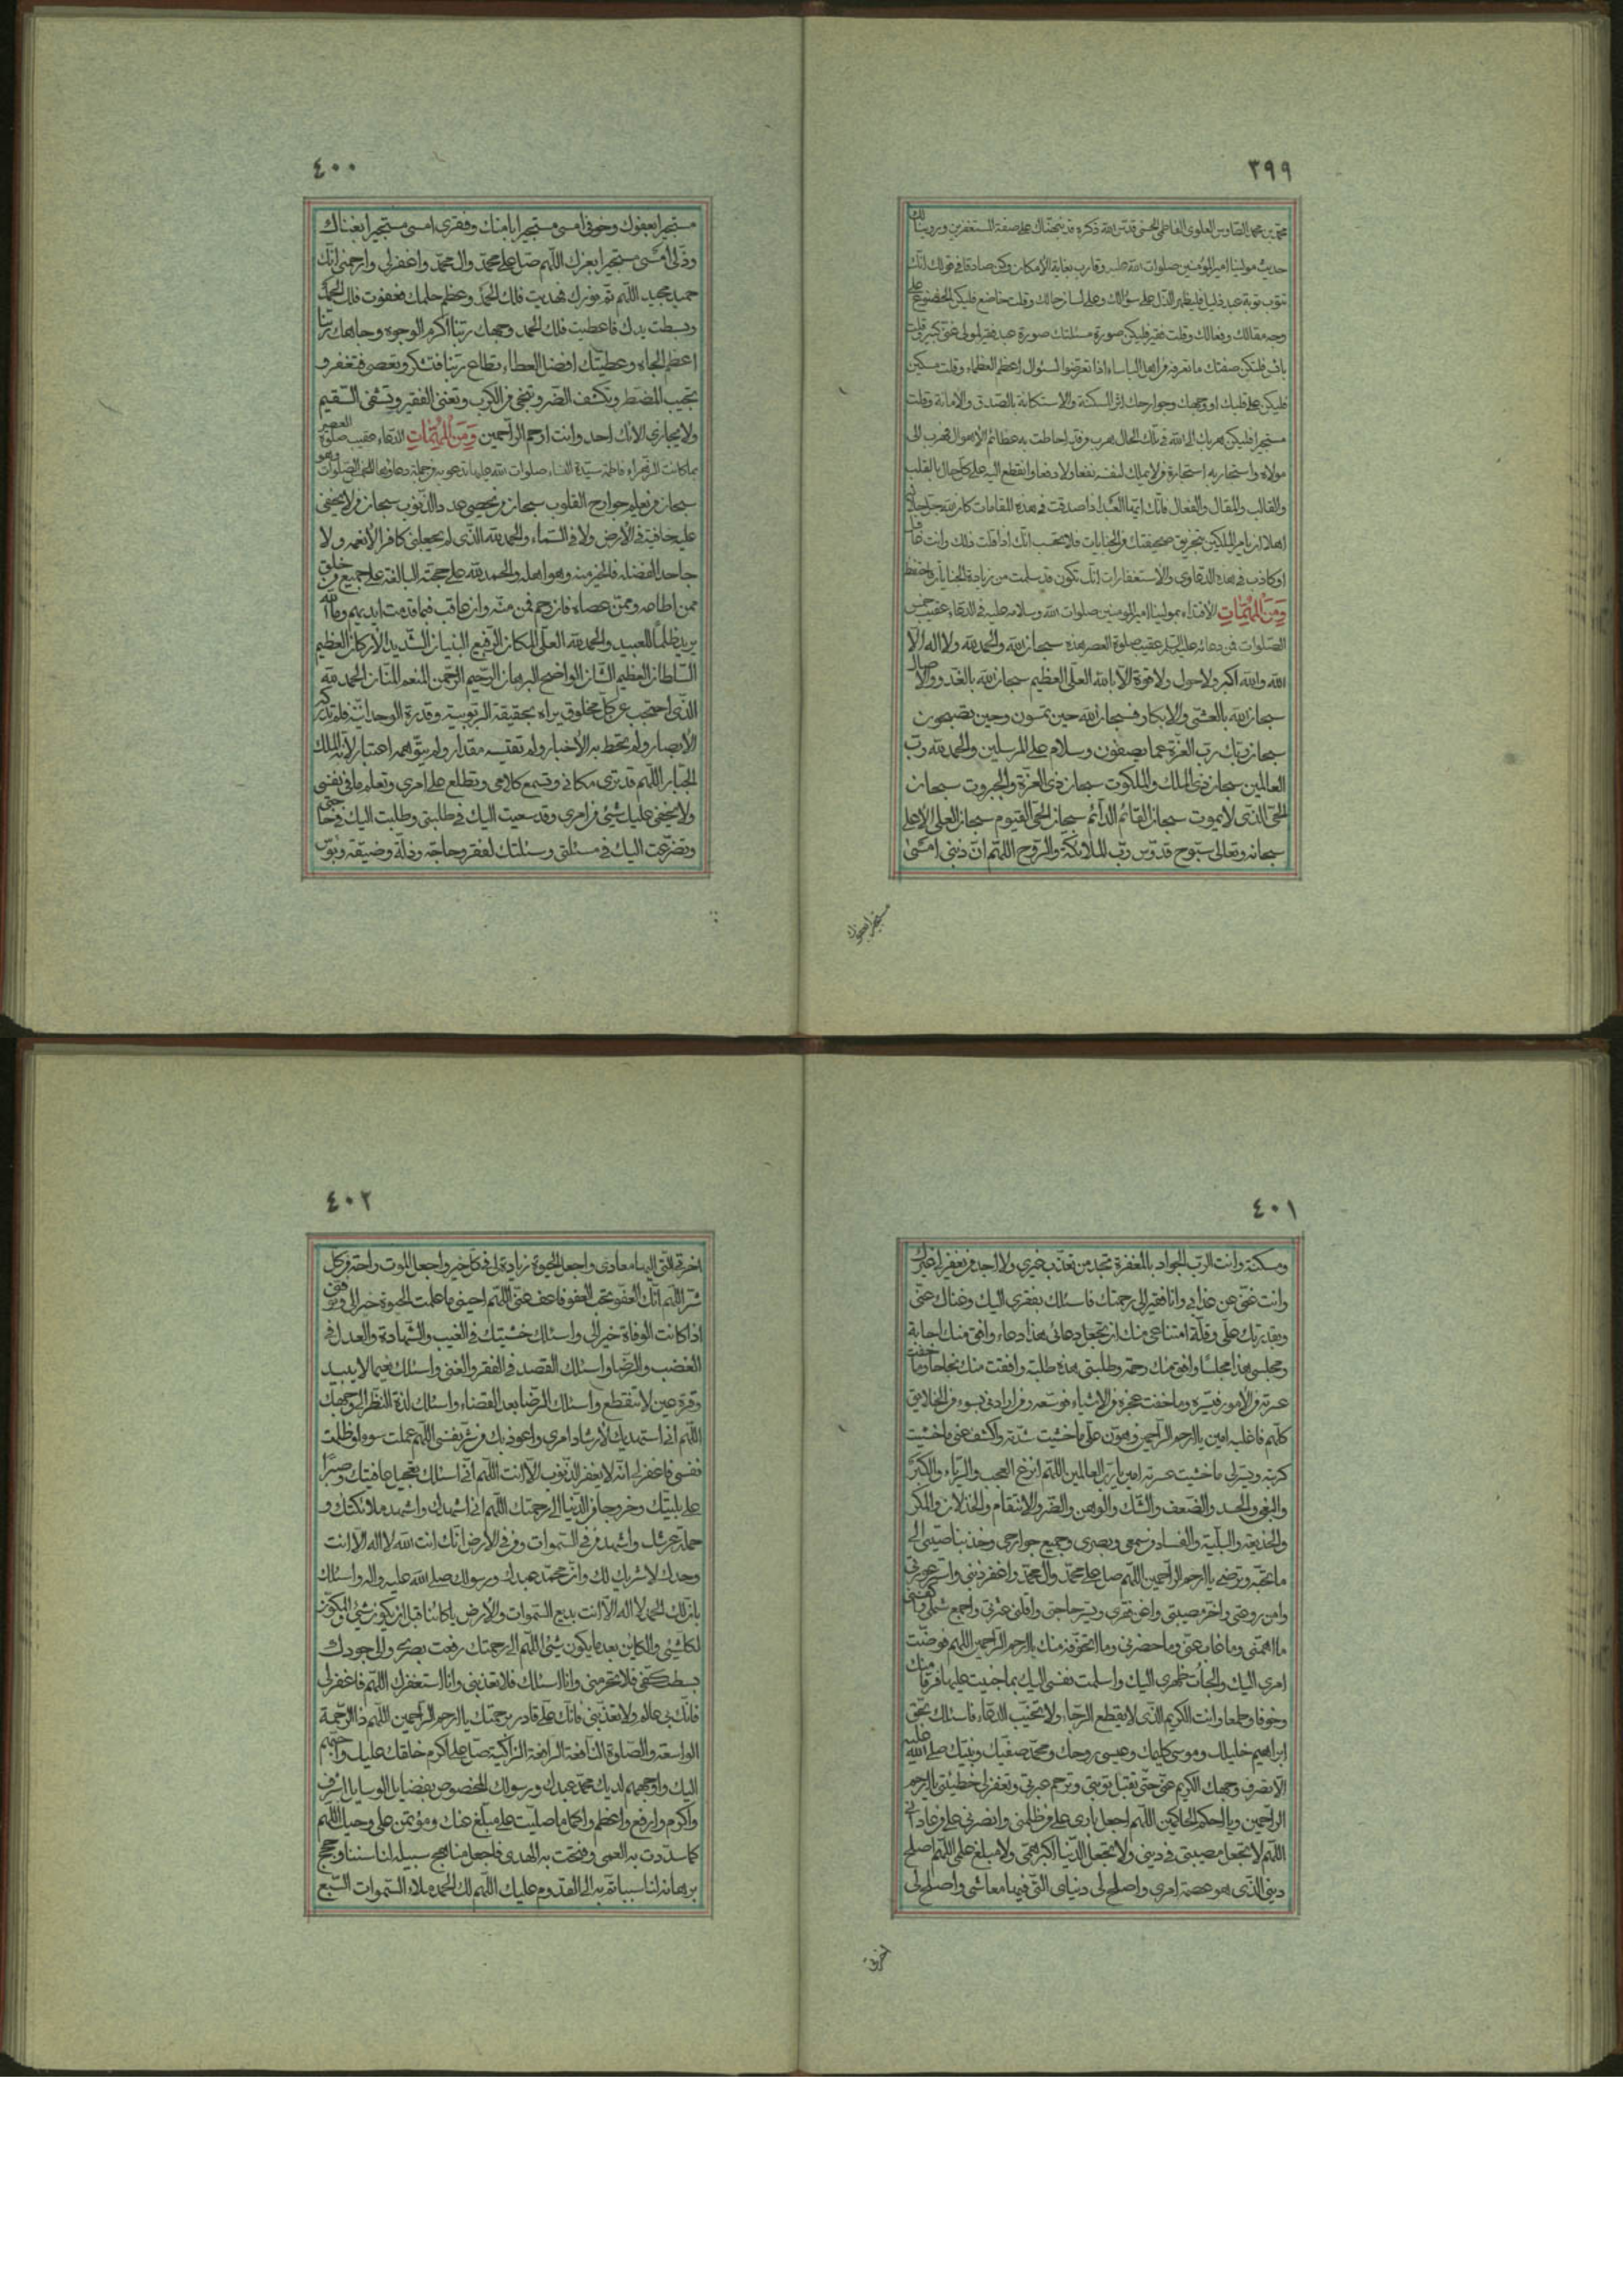 ٣٩٩
محمد بن محمد الطاوس العلوي الفاطمي الحسني قدس الله ذكره قد نبهناك على صفة المستغفرين وروينا لك
حديث مولينا امير المؤمنين صلوات الله عليه وقارب بغاية الأمكان وكن صادقا في قولك انك
تتوب توبة عبد ذليل فليظهر الذل على سؤالك وعلى لسان حالك وقلت خاضع فليكن الخضوع على
وجه مقالك وفعالك وقلت فقير فليكن صورة مسئلتك صورة عبد فقير لمولى غني كبير وقلت
بائس فلتكن صفتك ما تعرفه من اهل الباساء اذا تعرضوا لسئوال اعظم العظماء وقلت مسكين
فليكن على قلبك او وجهك وجوارحك اثر المسكنة والاستكانة بالصدق والأمانة وقلت
مستجير فليكن هربك الى الله في تلك الحال هرب من قد احاطت به عظائم الأهوال فهرب الى
مولاه واستجار به استجارة من لا يملك لنفسه نفعا ولا دفعا وانقطع اليه على كل حال بالقلب
والقالب والمقال والفعال فانك ايها العبد اذا صدقت في هذه المقامات كان الله جل جلاله
اهلا ان يامر الملكين بتحريق صحيفتك من الجنايات فلا تحسب انك اذا قلت ذلك وانت غافل
او كاذب في هذه الدعاوي والاستغفارات انك تكون قد سلمت من زيادة الجنايات واحفظ
وَمِنَ الْمُهِمّاتِ الأقتداء بمولينا امير المؤمنين صلوات الله وسلامه عليه في الدعاء عقيب الخمس
الصلوات فمن دعائه عليه السلم عقيب صلوة العصر هذه سبحان الله والحمد لله ولا اله الا
الله والله اكبر ولا حول ولا قوة الا بالله العلي العظيم سبحان الله بالغدو والآصال
سبحان الله بالعشي والابكار فسبحان الله حين تمسون وحين تصبحون
سبحان ربك رب العزة عما يصفون وسلام على المرسلين والحمد لله رب
العالمين سبحان ذي الملك والملكوت سبحان ذي العزة والجبروت سبحان
الحي الذي لا يموت سبحان القائم الدائم سبحان الحي القيوم سبحان العلي الأعلى
سبحانه وتعالى سبوح قدوس رب الملائكة والروح اللهم ان ذنبي امسى
مستجيرا بعفوك
٤٠٠
مستجيرا بعفوك وخوفي امسى مستجيرا بامنك وفقري امسى مستجيرا بغناك
وذلي امسى مستجيرا بعزك اللهم صل على محمد وال محمد واغفر لي وارحمني انك
حميد مجيد اللهم تم نورك فهديت فلك الحمد وعظم حلمك فعفوت فلك الحمد
وبسطت يدك فاعطيت فلك الحمد وجهك ربنا اكرم الوجوه وجاهك ربنا
اعظم الجاه وعطيتك افضل العطاء تطاع ربنا فتشكر وتعصى فتغفر و
تجيب المضطر وتكشف الضر وتنجي من الكرب وتغني الفقير وتشفي السقيم
ولا يجازي الائك احد وانت ارحم الراحمين وَمِنَ الْمُهِمّاتِ الدعاء عقيب صلوة العصر
بما كانت الزهراء فاطمة سيدة النساء صلوات الله عليها تدعو به من جملة دعاوتها للخمس الصلوات وهو
سبحان من يعلم جوارح القلوب سبحان من يحصي عدد الذنوب سبحان من لا يخفى
عليه خافية في الأرض ولا في السماء والحمد لله الذي لم يجعلني كافرا لأنعمه ولا
جاحدا لفضله فالخير منه وهو اهله والحمد لله على حجته البالغة على جميع من خلق
ممن اطاعه وممن عصاه فان رحم فمن منه وان عاقب فبما قدمت ايديهم وما الله
يريد ظلما للعبيد والحمد لله العلي المكان الرفيع البنيان الشديد الأركان العظيم
السلطان العظيم الشان الواضح البرهان الرحيم الرحمن المنعم المنان الحمد لله
الذي احتجب عن كل مخلوق يراه بحقيقة الربوبية وقدرة الوحدانية فلم تدركه
الأبصار ولم تحط به الأخبار ولم تقسه مقدار ولم يتوهمه اعتبار لأنه الملك
الجبار اللهم قد ترى مكاني وتسمع كلامي وتطلع على امري وتعلم ما في نفسي
ولا يخفى عليك شيئ من امري وقد سعيت اليك في طلبتي وطلبت اليك في حاجتي
وتضرعت اليك في مسئلتي وسئلتك لفقر وحاجة وذلة وضيقة وبؤس
٤٠١
ومسكنة وانت الرب الجواد بالمغفرة تجد من تعذب غيري ولا اجد من يغفر لي غيرك
وانت غني عن عذابي وانا فقير الى رحمتك فاسئلك بفقري اليك وغناك عني
وبقدرتك علي وقلة امتناعي منك ان تجعل دعائي هذا دعاء وافق منك اجابة
ومجلسي هذا مجلسا وافق منك رحمة وطلبتي هذه طلبة وافقت منك نجاحا وما خفت
عسرته من الأمور فيسره وما خفت عجزه من الاشياء فوسعه ومن ارادني بسوء من الخلائق
كلهم فاغلبه امين يا ارحم الراحمين وهون علي ما خشيت شدته واكشف عني ما خشيت
كربته ويسر لي ما خشيت عسرته امين يا رب العالمين اللهم انزع العجب والرياء والكبر
والبغي والحسد والضعف والشك والوهن والضر والاسقام والخذلان والمكر
والخديعة والبلية والفساد من سمعي وبصري وجميع جوارحي وخذ بناصيتي الى
ما تحب وترضى يا ارحم الراحمين اللهم صل على محمد وال محمد واغفر ذنبي واستر عورتي
وامن روعتي واجبر مصيبتي واغن فقري ويسر حاجتي واقلني عثرتي واجمع شملي واكفني
ما اهمني وما غاب عني وما حضرني وما اتخوفه منك يا ارحم الراحمين اللهم فوضت
امري اليك والجأت ظهري اليك واسلمت نفسي اليك بما جنيت عليها فرقا منك
وخوفا وطمعا وانت الكريم الذي لا يقطع الرجاء ولا يخيب الدعاء فاسئلك بحق
ابراهيم خليلك وموسى كليمك وعيسى روحك ومحمد صفيك ونبيك صلى الله عليه
الا تصرف وجهك الكريم عني حتى تقبل توبتي وترحم عبرتي وتغفر لي خطيئتي يا ارحم
الراحمين ويا احكم الحاكمين اللهم اجعل ثاري على من ظلمني وانصرني على من عاداني
اللهم لا تجعل مصيبتي في ديني ولا تجعل الدنيا اكبر همي ولا مبلغ علمي اللهم اصلح
ديني الذي هو عصمة امري واصلح لي دنياي التي فيها معاشي واصلح لي
اخرتي
٤٠٢
اخرتي التي اليها معادي واجعل الحيوة زيادة لي في كل خير واجعل الموت راحة من كل
شر اللهم انك العفو تحب العفو فاعف عني اللهم احيني ما علمت الحيوة خيرا لي وتوفني
اذا كانت الوفاة خيرا لي واسئلك خشيتك في الغيب والشهادة والعدل في
الغضب والرضا واسئلك القصد في الفقر والغنى واسئلك نعيما لا يبيد
وقرة عين لا تنقطع واسئلك الرضا بعد القضاء واسئلك لذة النظر الى وجهك
اللهم اني استهديك لأرشاد امري واعوذ بك من شر نفسي اللهم عملت سوء وظلمت
نفسي فاغفر لي انه لا يغفر الذنوب الا انت اللهم اني اسئلك تعجيل عافيتك وصبرا
على بليتك وخروجا من الدنيا الى رحمتك اللهم اني اشهدك واشهد ملائكتك و
حملة عرشك واشهد من في السموات ومن في الأرض انك انت الله لا اله الا انت
وحدك لا شريك لك وان محمد عبدك ورسولك صلى الله عليه واله واسئلك
بان لك الحمد لا اله الا انت بديع السموات والأرض يا كائنا قبل ان يكون شيئ والمكون
لكل شيئ والكاين بعد ما يكون شيئ اللهم الى رحمتك رفعت بصري والى جودك
بسطت كفي فلا تحرمني وانا اسئلك فلا تعذبني وانا استغفرك اللهم فاغفر لي
فانك بي عالم ولا تعذبني فانك علي قادر برحمتك يا ارحم الراحمين اللهم ذا الرحمة
الواسعة والصلوة النافعة الرافعة الزاكية صل على اكرم خلقك عليك واحبهم
اليك واوجههم لديك محمد عبدك ورسولك المخصوص بفضايل الوسايل اشرف
واكرم وارفع واعظم واكمل ما صليت على مبلغ عنك ومؤتمن على وحيك اللهم
كما سددت به العمى وفتحت به الهدى فاجعل مناهج سبيله لنا سننا وحجج
برهانه لنا سببا نأتم به الى القدوم عليك اللهم لك الحمد ملاء السموات السبع